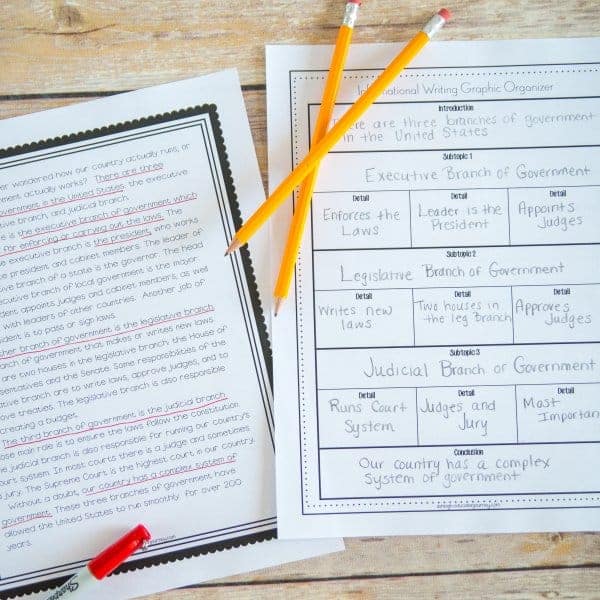 er wondered how our country actually runs, or
ment actually works? There are three
vernment is the United States, the executive
ative branch, and judicial branch.
is the executive branch of government which
for enforcing or carrying out the laws. The
executive branch is the president, who works
e president, and cabinet members. The leader of
tive branch of a state is the governor. The head
tive branch of local government is the mayor.
dent appoints judges and cabinet members, as well
with leaders of other countries. Another job of
dent is to pass or sign laws.
ther branch of government is the legislative branch.
anch of government that makes or writes new laws.
are two houses in the legislative branch, the House of
sentatives and the Senate. Some responsibilities of the
ative branch are to write laws, approve judges, and to
ove treaties. The legislative branch is also responsible
creating a budget.
The third branch of government is the judicial branch,
ose main role is to ensure the laws follow the constitution.
he judicial branch is also responsible for running our country's
court system. In most courts there is a judge and sometimes
a jury. The Supreme Court is the highest court in our country.
Without a doubt, our country has a complex system of
government. These three branches of government have
allowed the United States to run smoothly. For over 200
years.
Informational Writing Graphic Organizer
Introduction
There are three branches of government
in the United States
Subtopic 1
Executive Branch of Government
Detail Detail Detail
Enforces the Leader is the Appoints
Laws President Judges
Subtopic 2
Legislative Branch of Government
Detail Detail Detail
Writes new Two houses in Approves
laws the leg branch Judges
Subtopic 3
Judicial Branch of Government
Detail Detail Detail
Runs Court Judges and Most
System Jury Importan
Conclusion
Our country has a complex
System of government
Sharpie